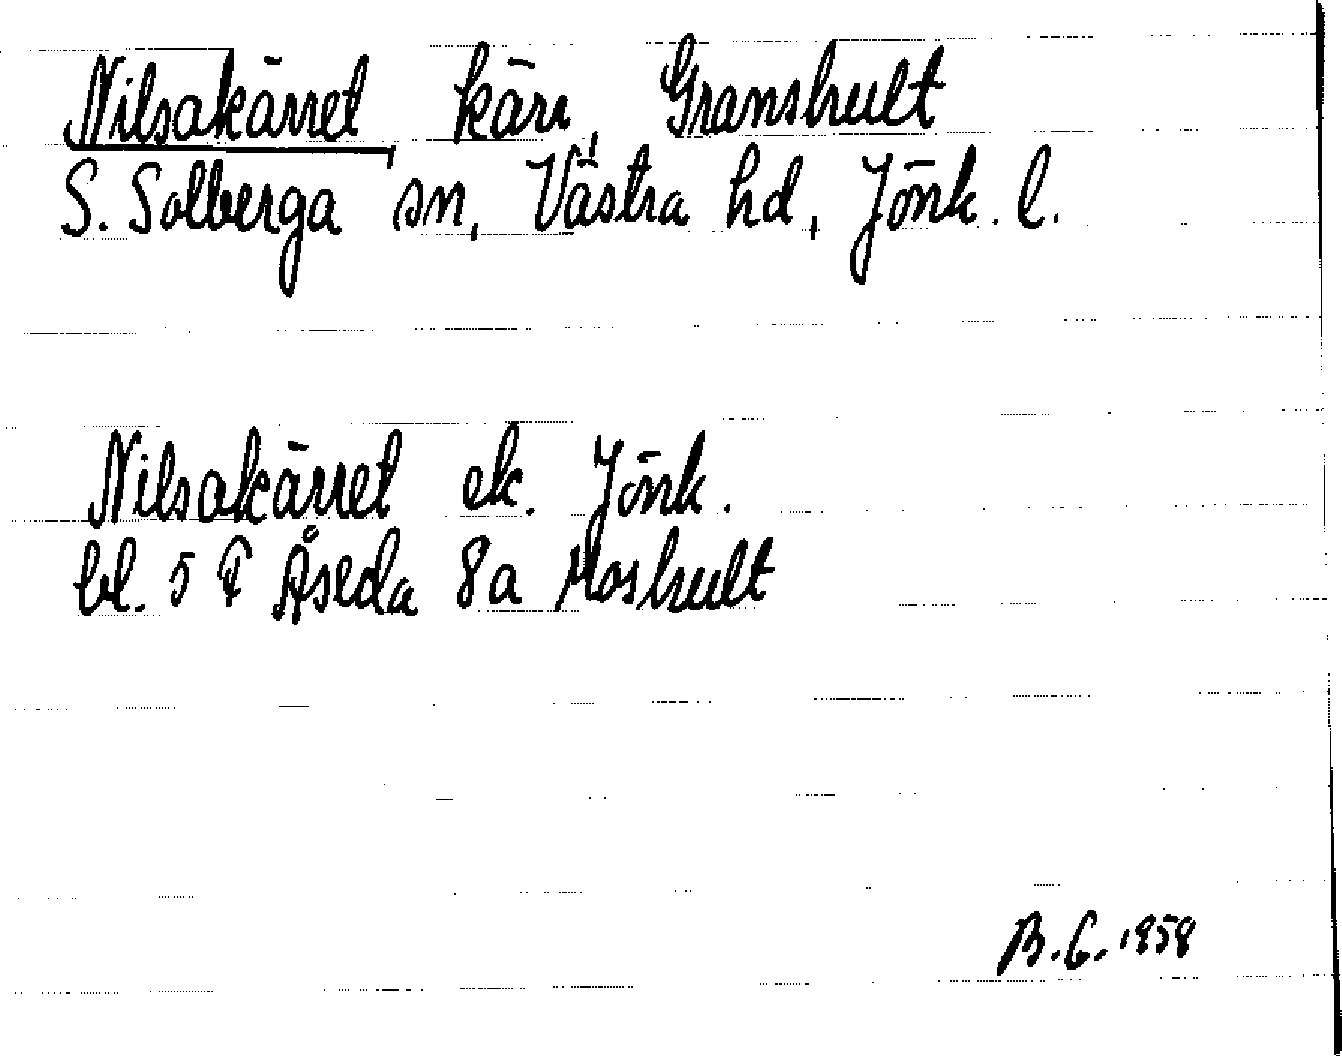 Nilsakärret kärr, Granshult
S. Solberga sn, Västra hd, Jönk. l.
Nilsakärret ek. Jönk.
bl. 5 F Åseda 8a Moshult
B.G. 1958